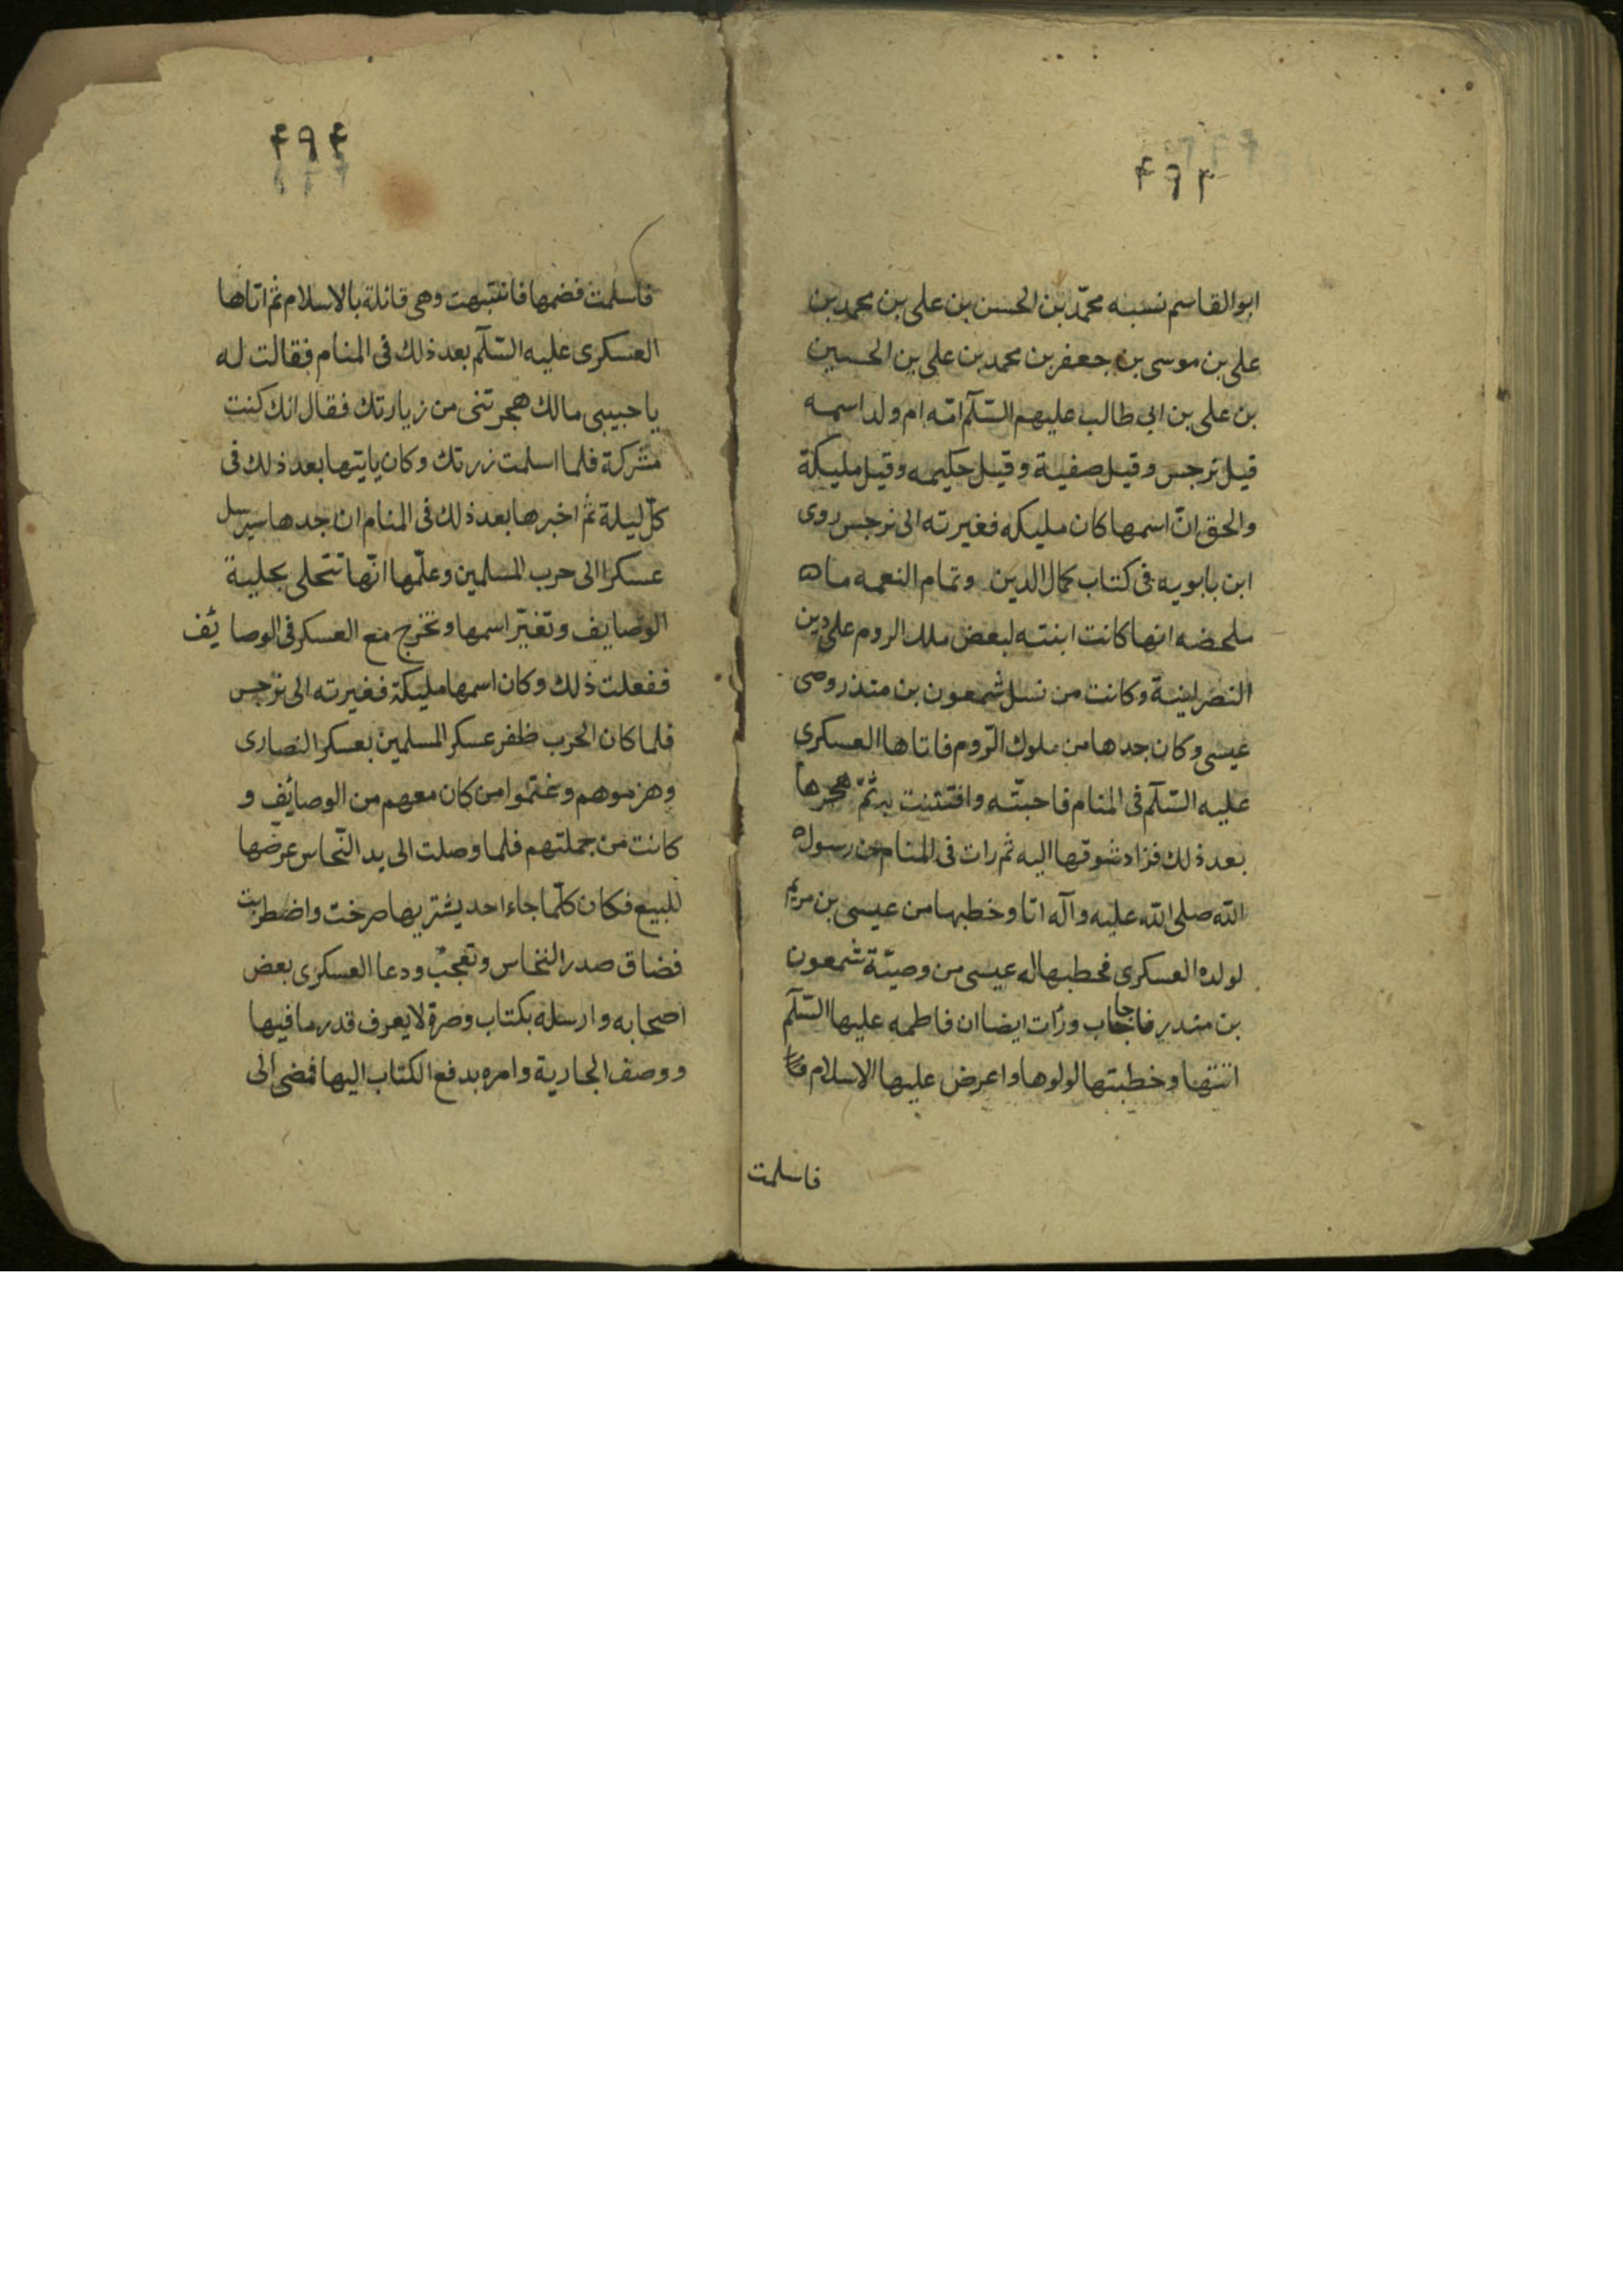 ۴۹۳
ابوالقاسم نسبه محمّد بن الحسن بن علی بن محمد بن
علی بن موسی بن جعفر بن محمد بن علی بن الحسین
بن علی بن ابی طالب علیهم السّلم امّه ام ولد اسمه
قیل نرجس وقیل صفیة وقیل حکیمه وقیل ملیکة
والحق انّ اسمها کان ملیکه فغیرته الی نرجس روی
ابن بابویه فی کتاب کمال الدین وتمام النعمه ما ه
ملحضه انها کانت ابنته لبعض ملک الروم علی دین
النصرانیة وکانت من نسل شمعون بن منذر وصی
عیسی وکان جدها من ملوک الرّوم فاتاها العسکری
علیه السّلم فی المنام فاحبتّه وافتتنت به ثمّ هجرها
بعد ذلک فزاد شوقها الیه ثم رات فی المنام من رسول ه
الله صلی الله علیه وآله اتا وخطبها من عیسی بن مریم
لولده العسکری فخطبها له عیسی من وصیّة شمعون
بن منذر فاجاب ورأت ایضا ان فاطمه علیها السّلم
اتتها وخطبتها لولوها واعرض علیها الاسلام
فاسلمت
۴۹۴
فاسلمت فضمها فانتبهت وهی قائلة بالاسلام ثم اتاها
العسکری علیه السّلم بعد ذلک فی المنام فقالت له
یا حبیبی مالک هجرتنی من زیارتک فقال انک کنت
مشرکة فلما اسلمت زرتک وکان یاتیها بعد ذلک فی
کلّ لیلة ثم اخبرها بعد ذلک فی المنام ان جدها سیرسل
عسکرا الی حرب المسلمین وعلّمها انّها تتحلی بحلیة
الوصایف وتغیّر اسمها وتخرج مع العسکر فی الوصایف
ففعلت ذلک وکان اسمها ملیکة فغیرته الی نرجس
فلما کان الحرب ظفر عسکر المسلمین بعسکر النصاری
وهزموهم وغنموا من کان معهم من الوصایف و
کانت من جملتهم فلما وصلت الی ید النّحاس عرضها
للبیع فکان کلّما جاء احد یشتریها صرخت واضطربت
فضاق صدر النخاس وتعجّب ودعا العسکری بعض
اصحابه وارسله بکتاب وصرة لا یعرف قدر ما فیها
ووصف الجاریة وامره بدفع الکتاب الیها فمضی الی